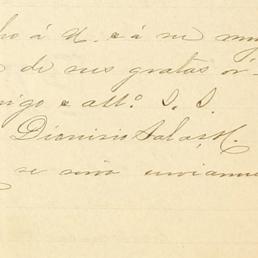 ho á U. e á su
de sus gratas ór-
igo e atto. S. S.
Dionisio Salas H.
se sirva enviarme